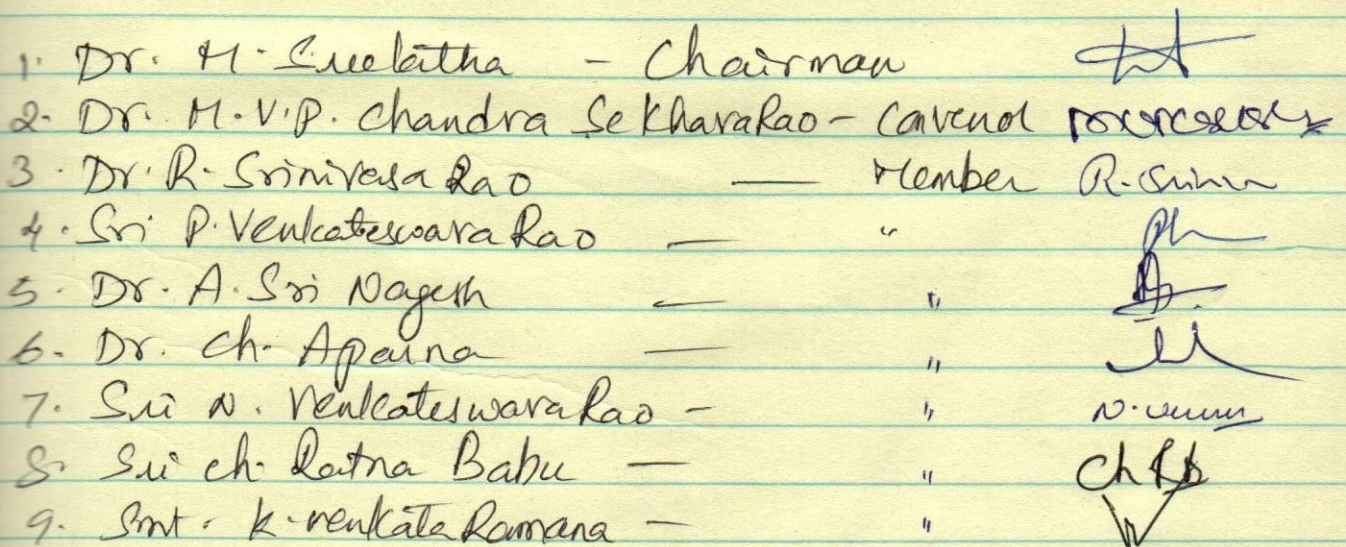 1. Dr. M. Sreelatha - Chairman
2. Dr. M.V.P. Chandra Sekhara Rao - Convenor
3. Dr. R. Srinivasa Rao — Member R. Sriniv
4. Sri P. Venkateswara Rao — "
5. Dr. A. Sri Nagesh — "
6. Dr. Ch. Aparna — "
7. Sri N. Venkateswara Rao - "
8. Sri Ch. Ratna Babu — " Ch Rb
9. Smt. K. Venkata Ramana — "